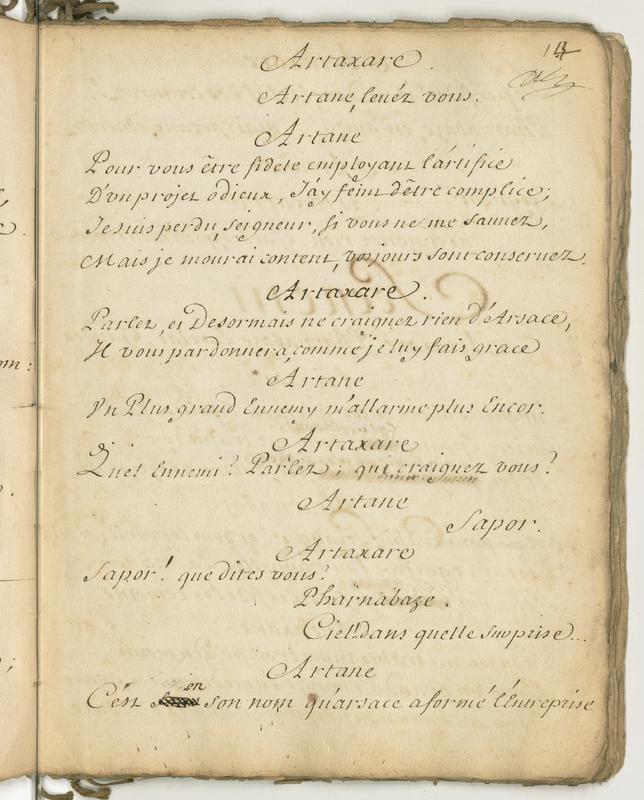 Artaxare.
Artane, levéz vous.
Artane
Pour vous être fidele employant l'artifice
D'vn projet odieux, J'áy feint d'être complice;
Je suis perdu, seigneur, si vous ne me sauuez,
Mais je mourai content, vos jours sont conseruez.
Artaxare.
Parlez, et Desormais ne craignez rien d'Arsace,
Il vous pardonnera, comme je luy fais grace
Artane
Vn Plus grand Ennemy m'allarme plus Encor.
Artaxare
Quel Ennemi? Parlez; qui craignez vous?
Artane
Sapor.
Artaxare
Sapor! que dites vous?
Pharnabaze.
Ciel! dans quelle surprise...
Artane
C'est en son nom qu'arsace a formé l'Entreprise